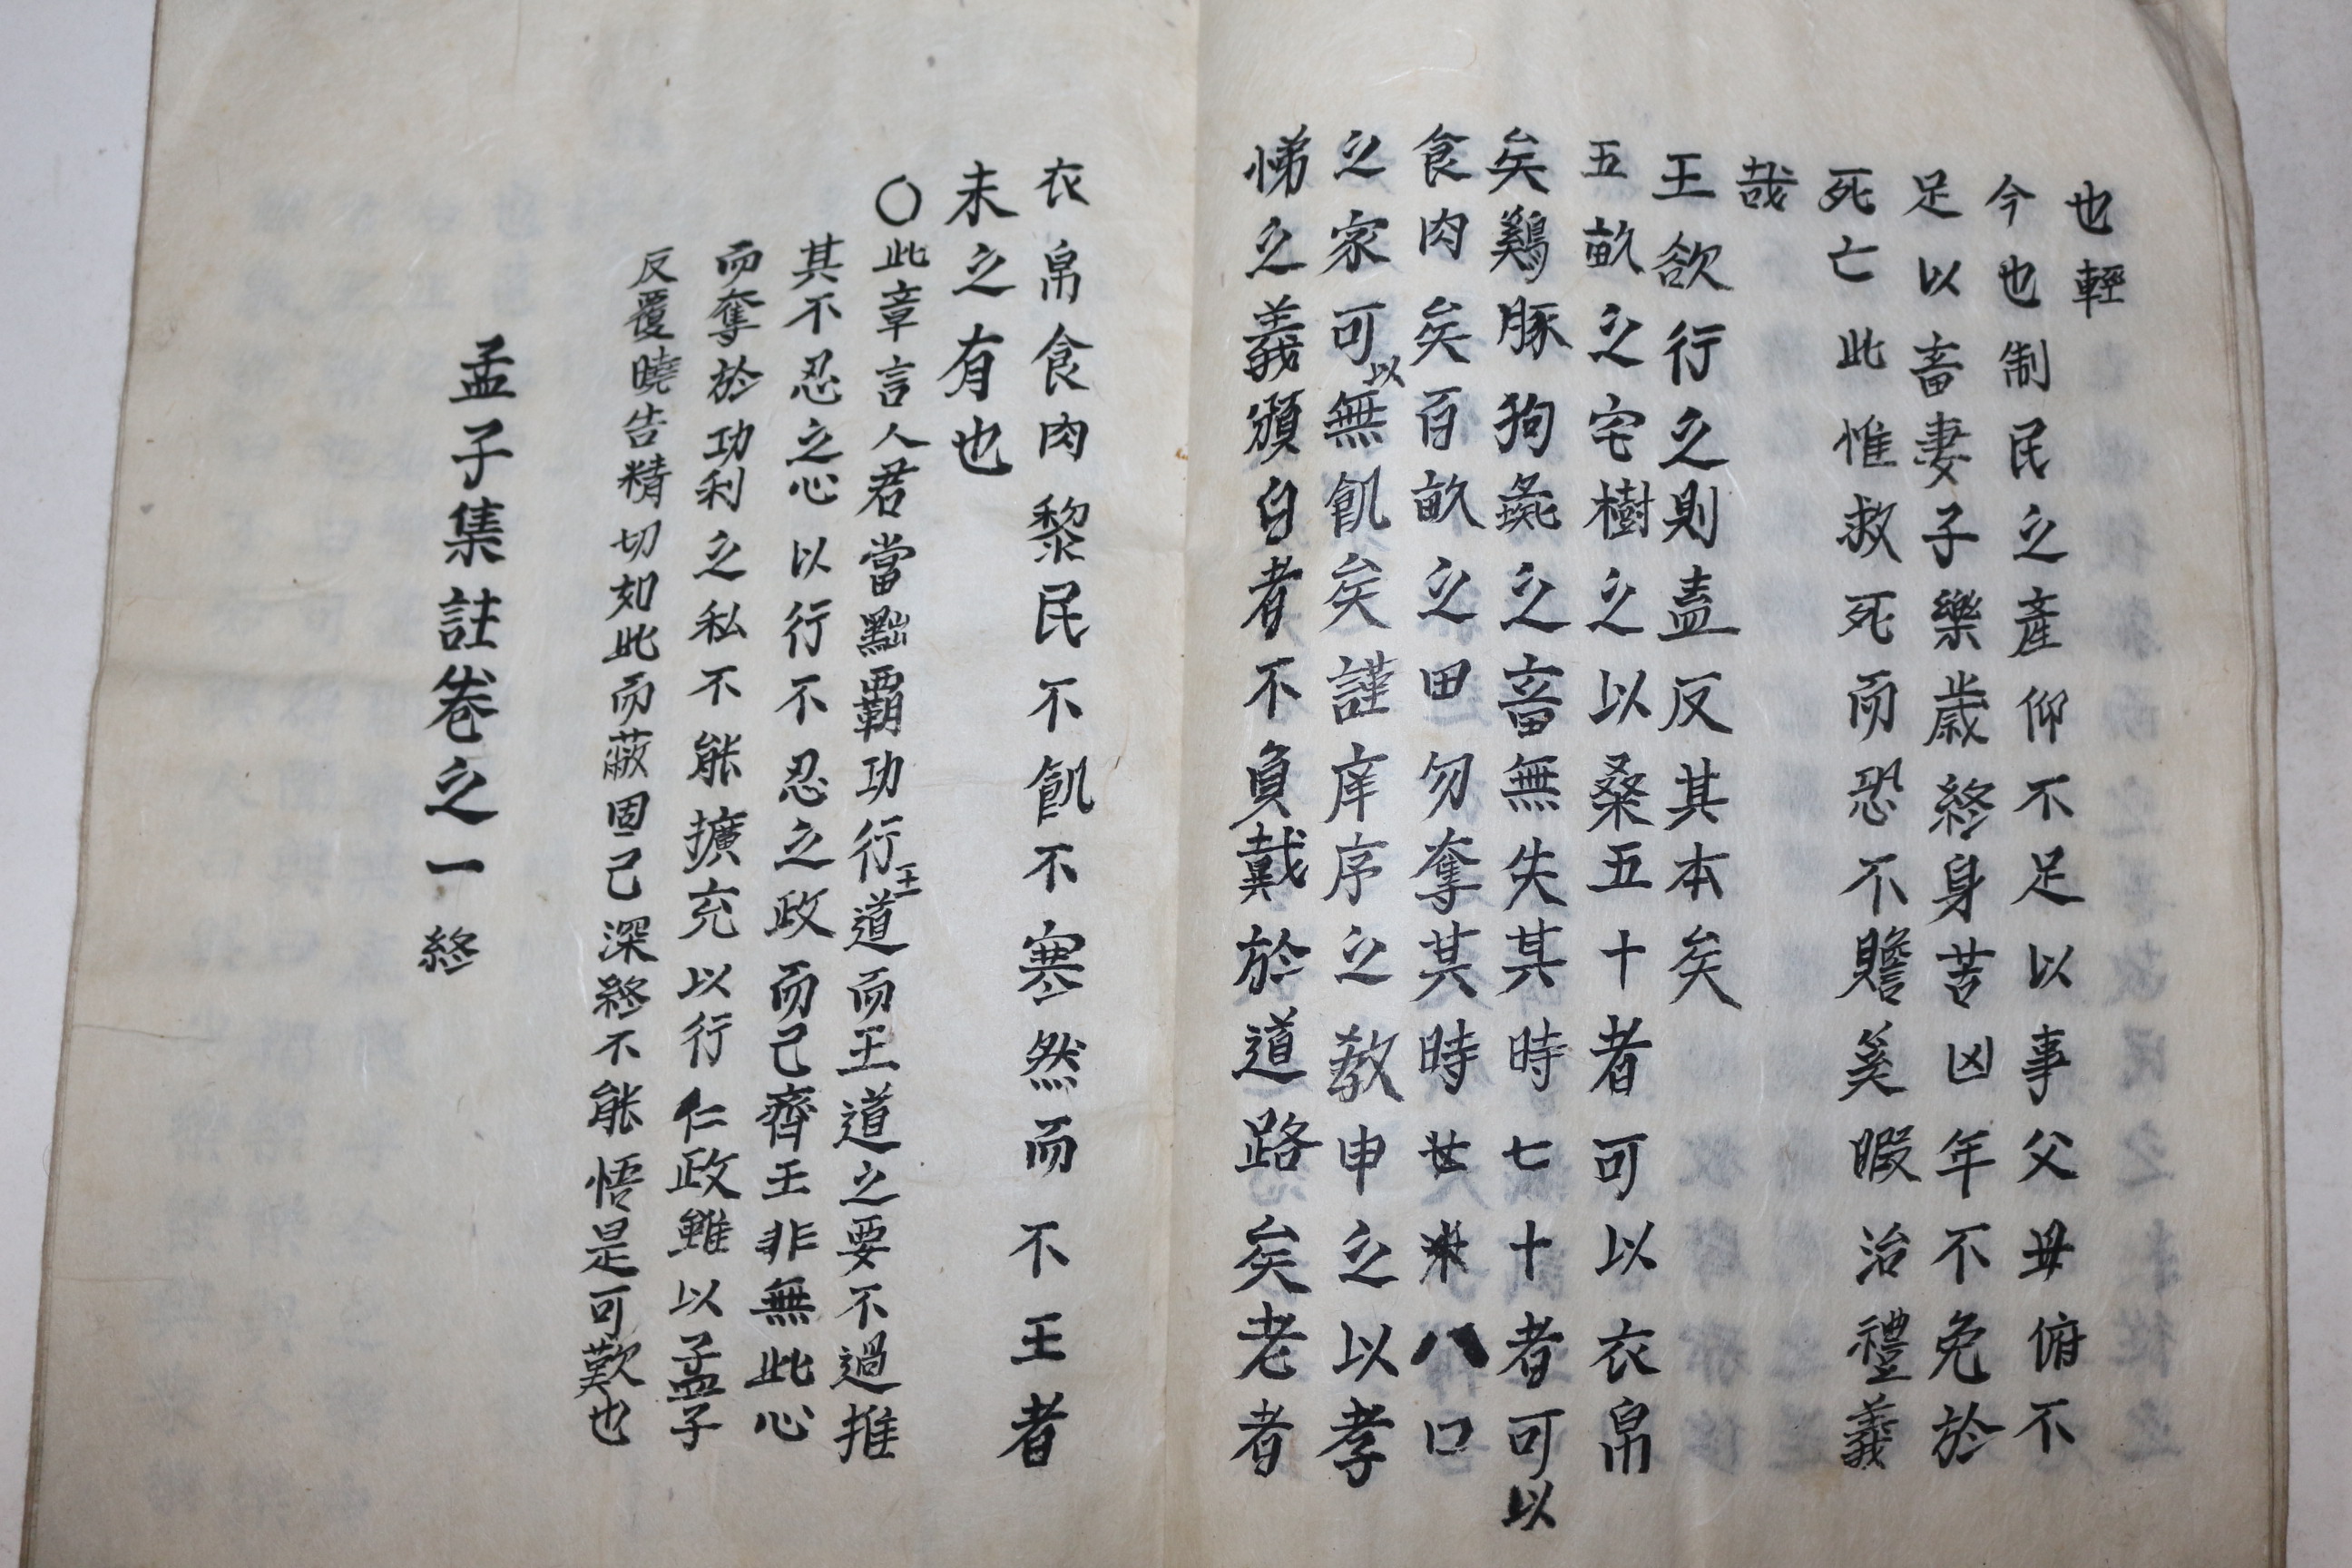 也輕
今也制民之產仰不足以事父母俯不
足以畜妻子樂歲終身苦凶年不免於
死亡此惟救死而恐不贍奚暇治禮義
哉
王欲行之則盍反其本矣
五畝之宅樹之以桑五十者可以衣帛
矣鷄豚狗彘之畜無失其時七十者可以
食肉矣百畝之田勿奪其時八口
之家可以無飢矣謹庠序之敎申之以孝
悌之義頒白者不負戴於道路矣老者
衣帛食肉黎民不飢不寒然而不王者
未之有也
○此章言人君當黜霸功行王道而王道之要不過推
其不忍之心以行不忍之政而已齊王非無此心
而奪於功利之私不能擴充以行仁政雖以孟子
反覆曉告精切如此而蔽固已深終不能悟是可歎也
孟子集註卷之一終